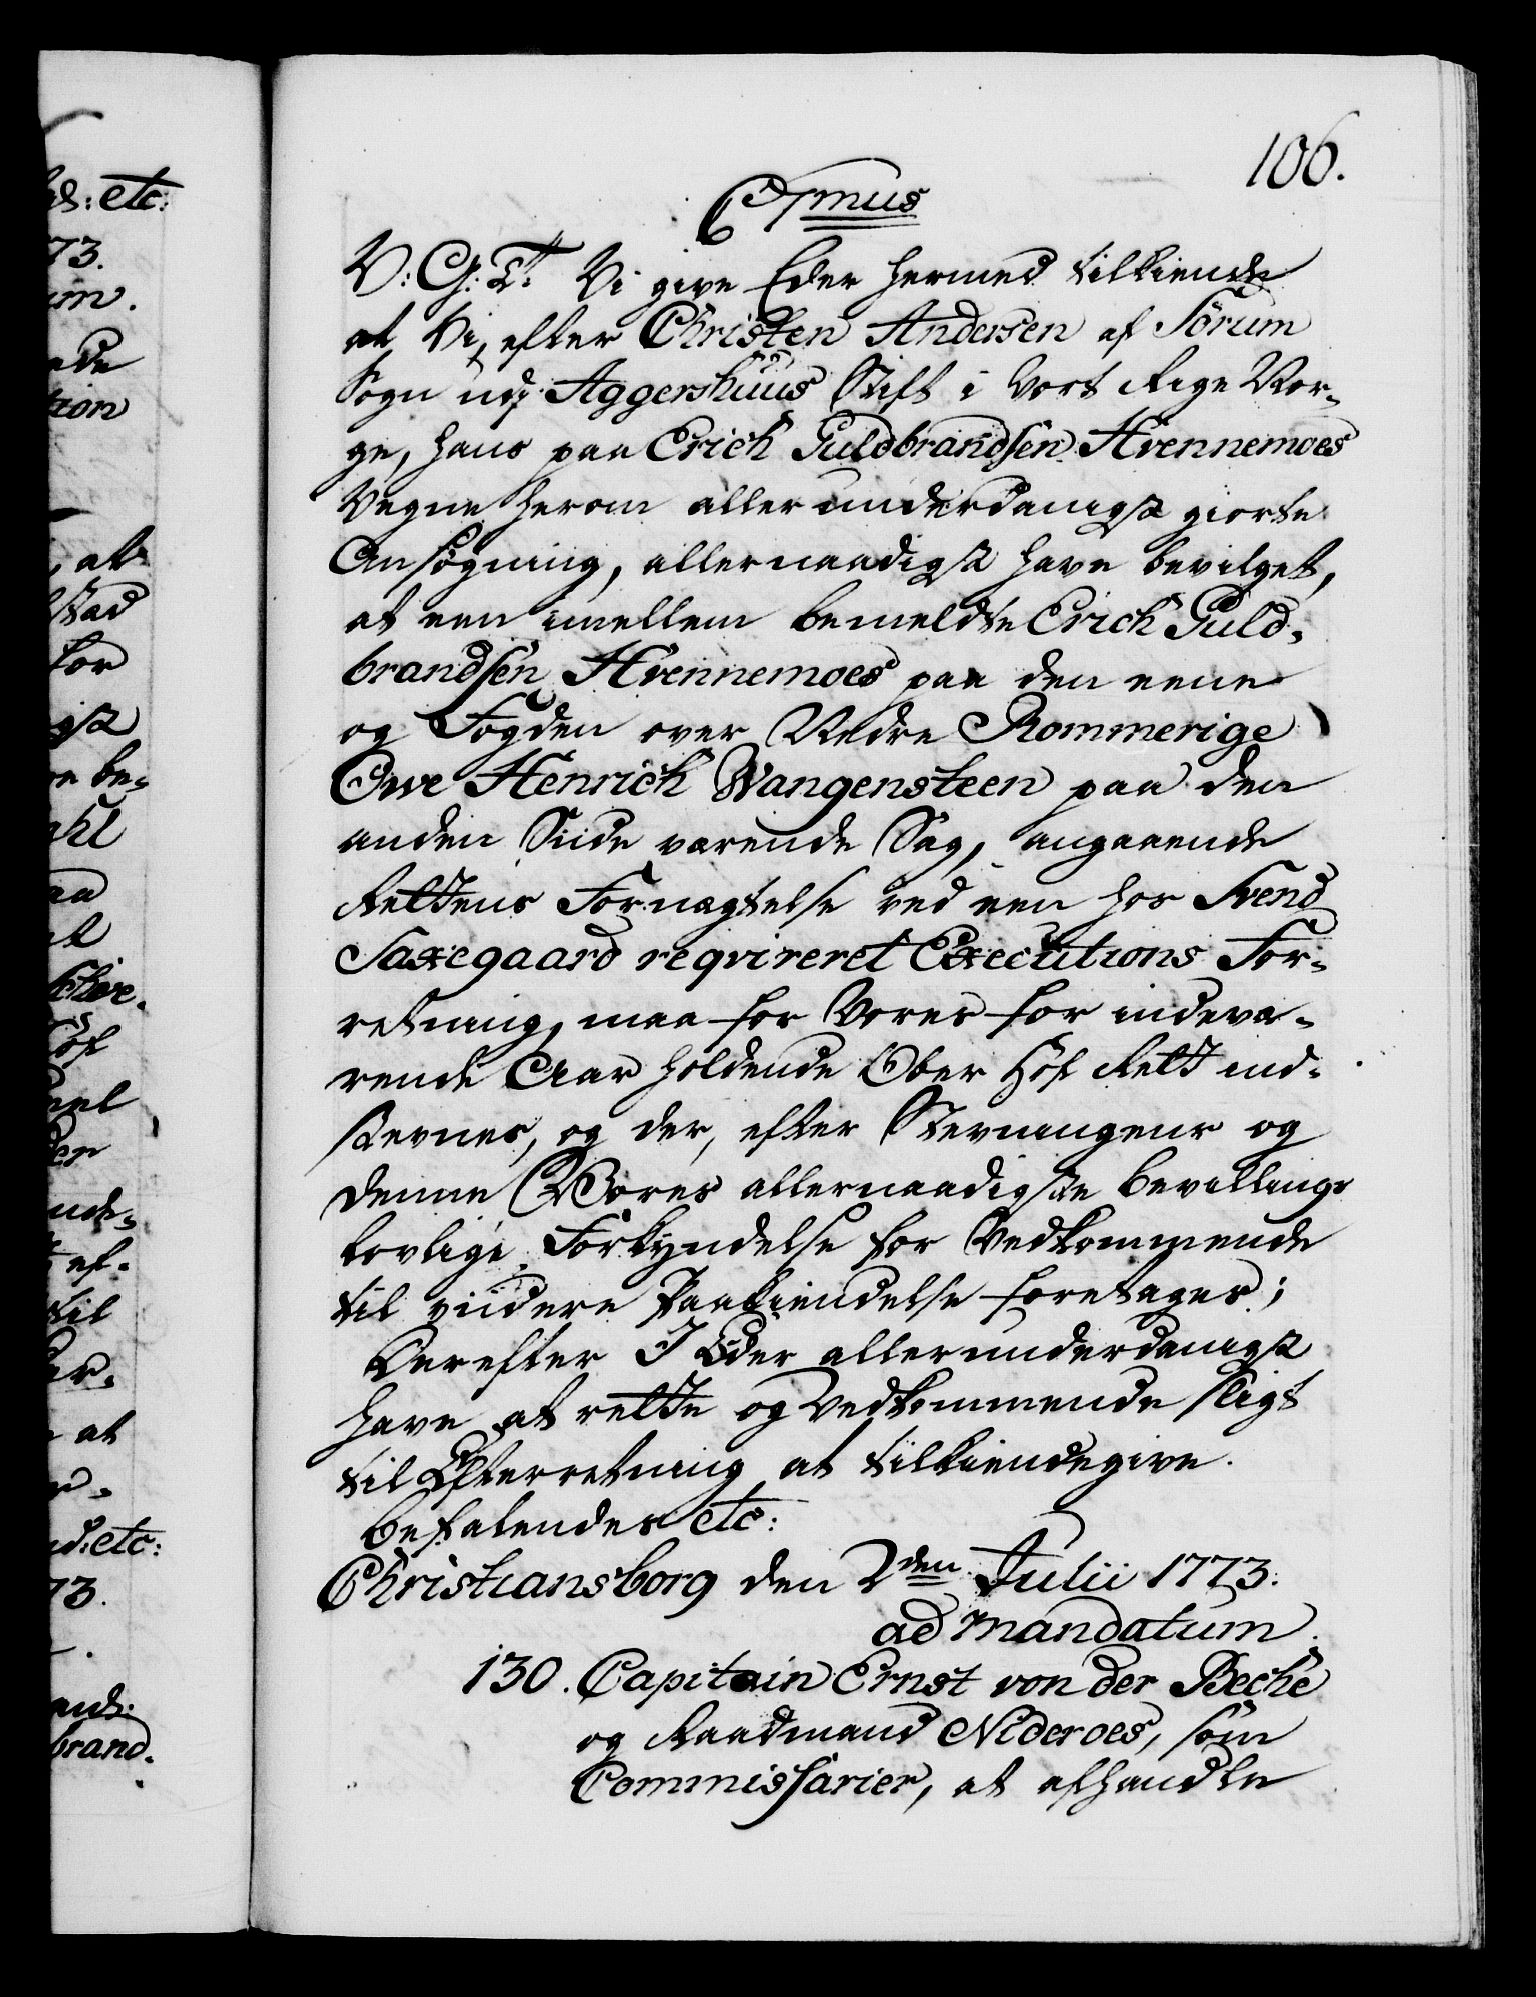 106.
C7mus
V: G: T: Vi give Eder hermed tilkiende
at Vi, efter Christen Andersen af Sørum
Sogn udj Aggershuus Stift i Vort Rige Nor-
ge, hans paa Erich Guldbrandsen Hvennemoes
Vegne herom allerunderdanigst giorte
Ansøgning, allernaadigst have bevilget,
at een imellem bemeldte Erich Guld-
brandsen Hvennemoes paa den eene
og Fogden over Nedre Rommerige
Owe Henrich Wangensteen paa den
anden Siide værende Sag, angaaende
Rettens Fornægtelse ved een hos Svend
Saxegaard reqvireret Executions For-
retning, maa for Vores for indevæ-
rende Aar holdende Ober Hof Rett ind-
stevnes, og der, efter Stevningens og
denne Vores allernaadigste bevillings
lovlige Forkyndelse for Vedkommende
til viidere Paakiendelse foretages;
Derefter I Eder allerunderdanigst
have at rette og Vedkommende sligt
til Efterretning at tilkiendegive.
befalendes etc:
Christiansborg den 2den Julii 1773.
ad mandatum.
130. Capitain Ernst von der Beche
og Raadmand Nideroes, som
Commissarier, at afhandle